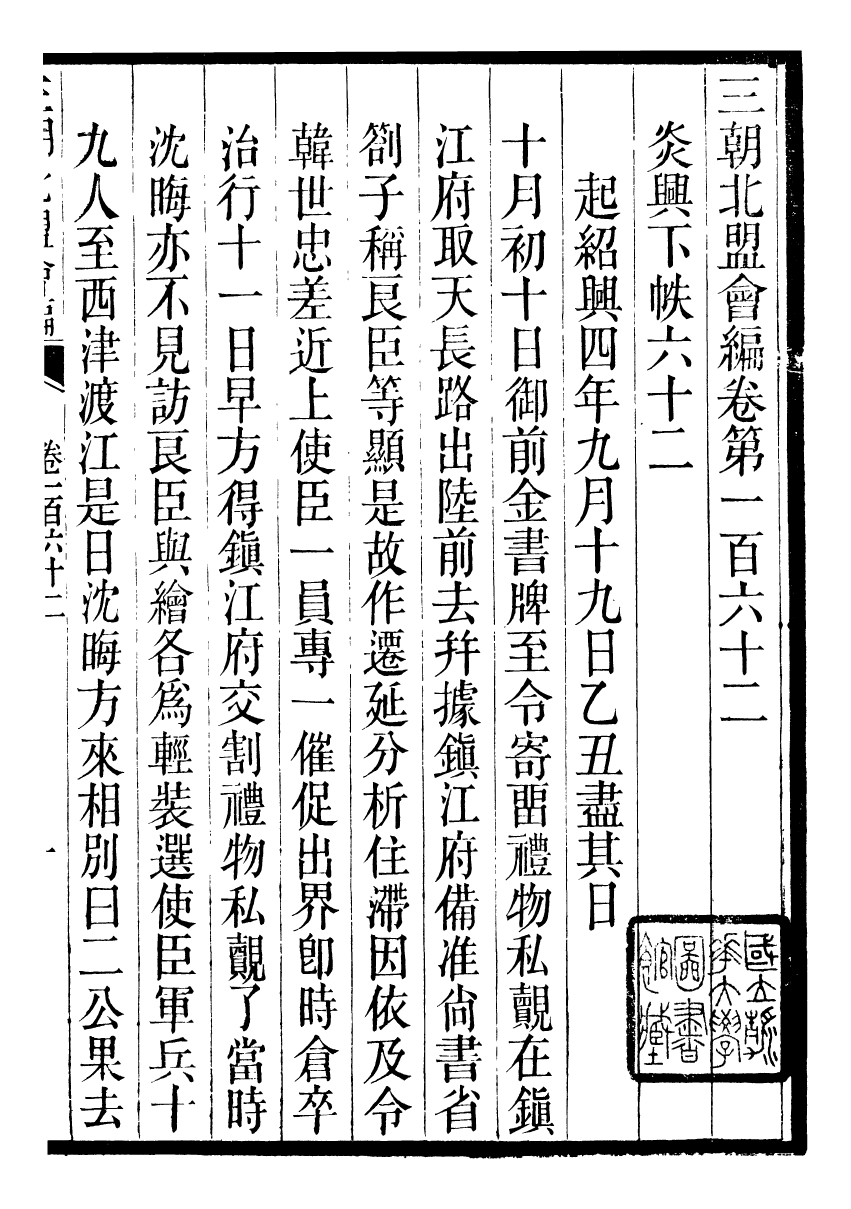 三朝北盟會編卷第一百六十二
炎興下帙六十二
起紹興四年九月十九日乙丑盡其日
十月初十日御前金書牌至令寄畱禮物私覿在鎭
江府取天長路出陸前去幷據鎭江府備准尙書省
劄子稱良臣等顯是故作遷延分析住滯因依及令
韓世忠差近上使臣一員專一催促出界卽時倉卒
治行十一日早方得鎭江府交割禮物私覿了當時
沈晦亦不見訪良臣與繪各爲輕裝選使臣軍兵十
九人至西津渡江是日沈晦方來相別曰二公果去
三朝北盟會編 卷一百六十二 一
國立清
華大學
圖書
館藏